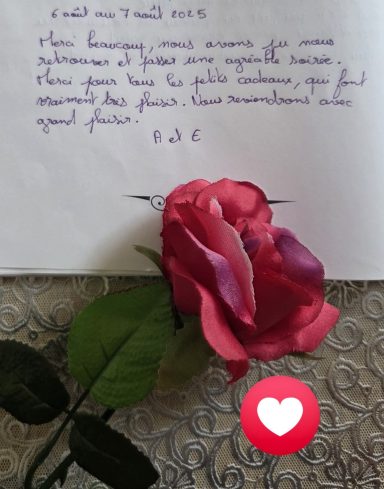 6 août au 7 août 2025
Merci beaucoup, nous avons pu nous
retrouver et passer une agréable soirée.
Merci pour tous les petits cadeaux, qui font
vraiment très plaisir. Nous reviendrons avec
grand plaisir.
A et E